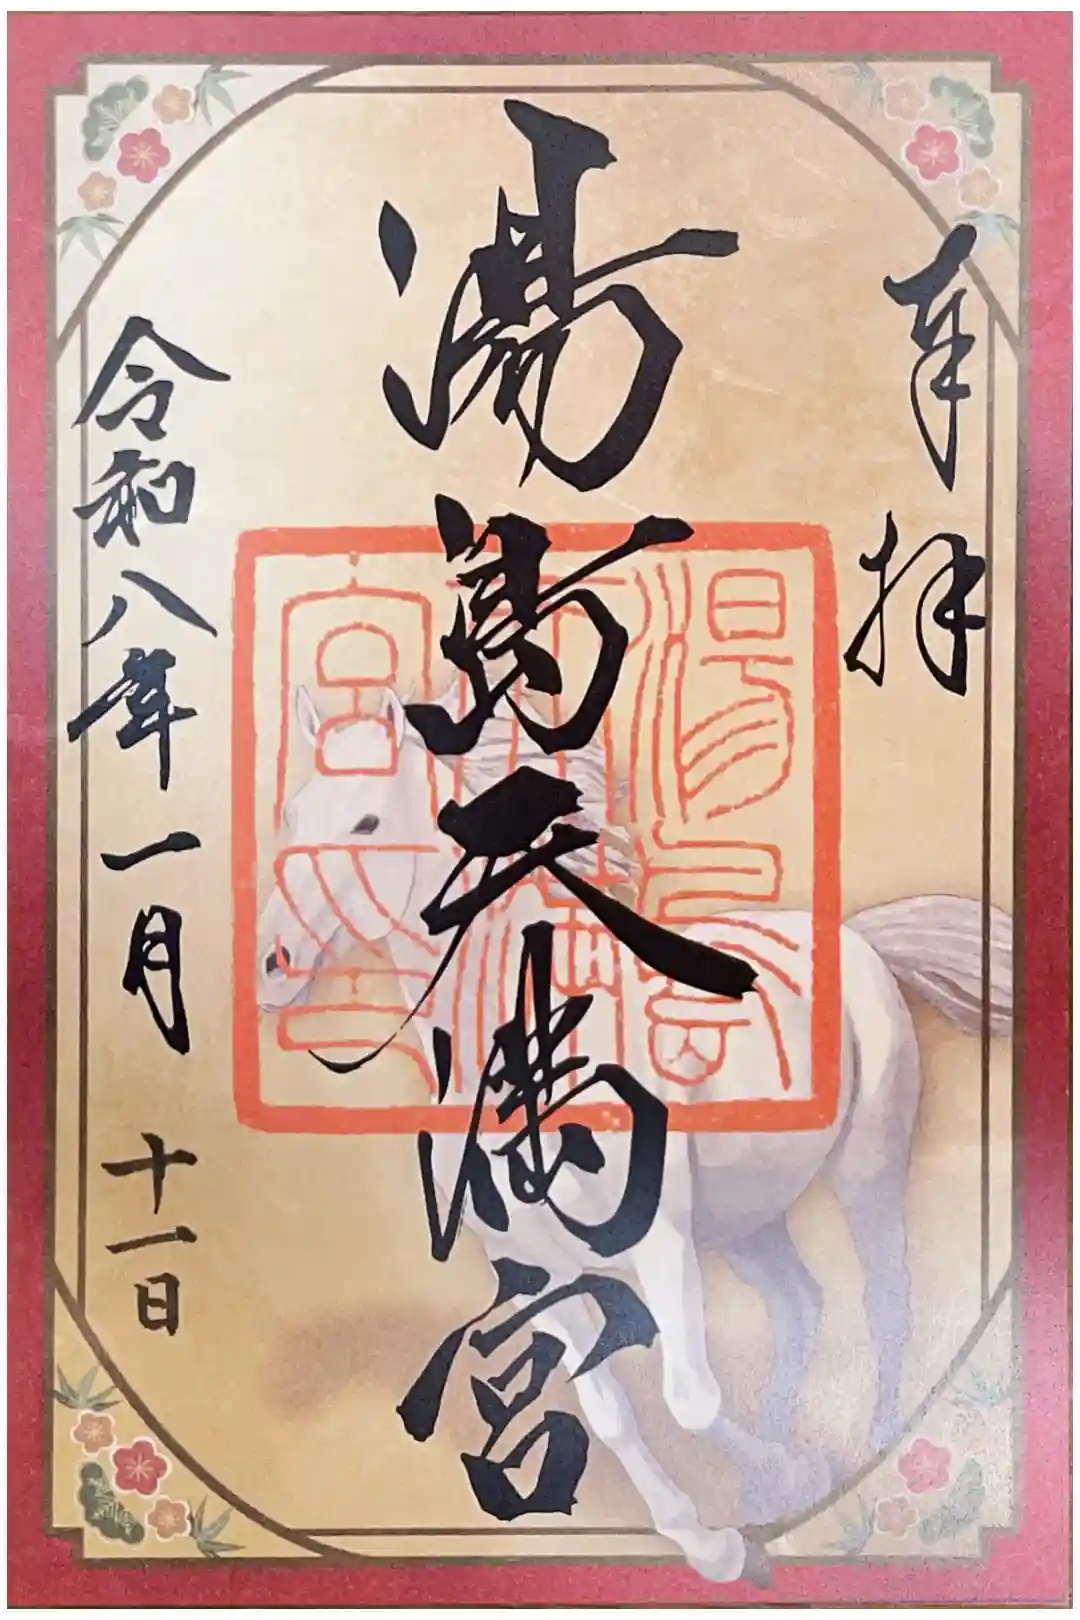 奉拝
湯島天満宮
湯島天満宮之印
令和八年一月十一日